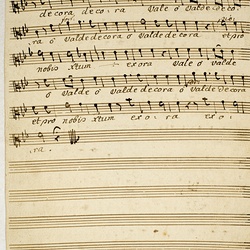 decora deco: ra Vale ô Valde de co
:ra ô valde decora ô valde decora et pro
nobis Xtum :/: exora vale ô valde
ô valde decora ô valde decora ô valde
et pro nobis Xtum exo: ra exo:
:ra.